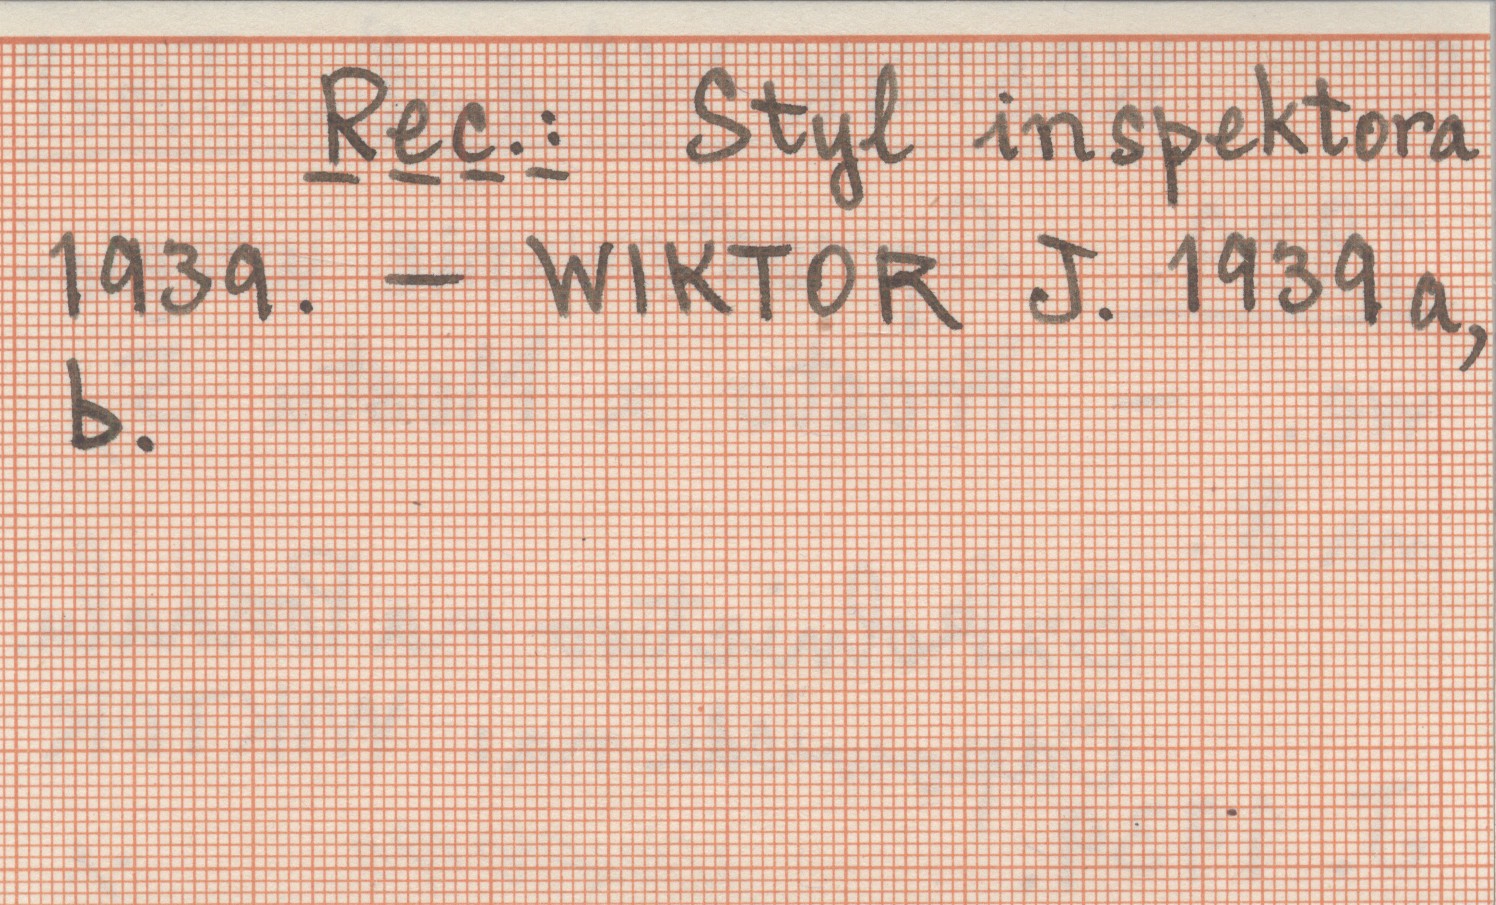 Rec.: Styl inspektora
1939. — WIKTOR J. 1939a,
b.